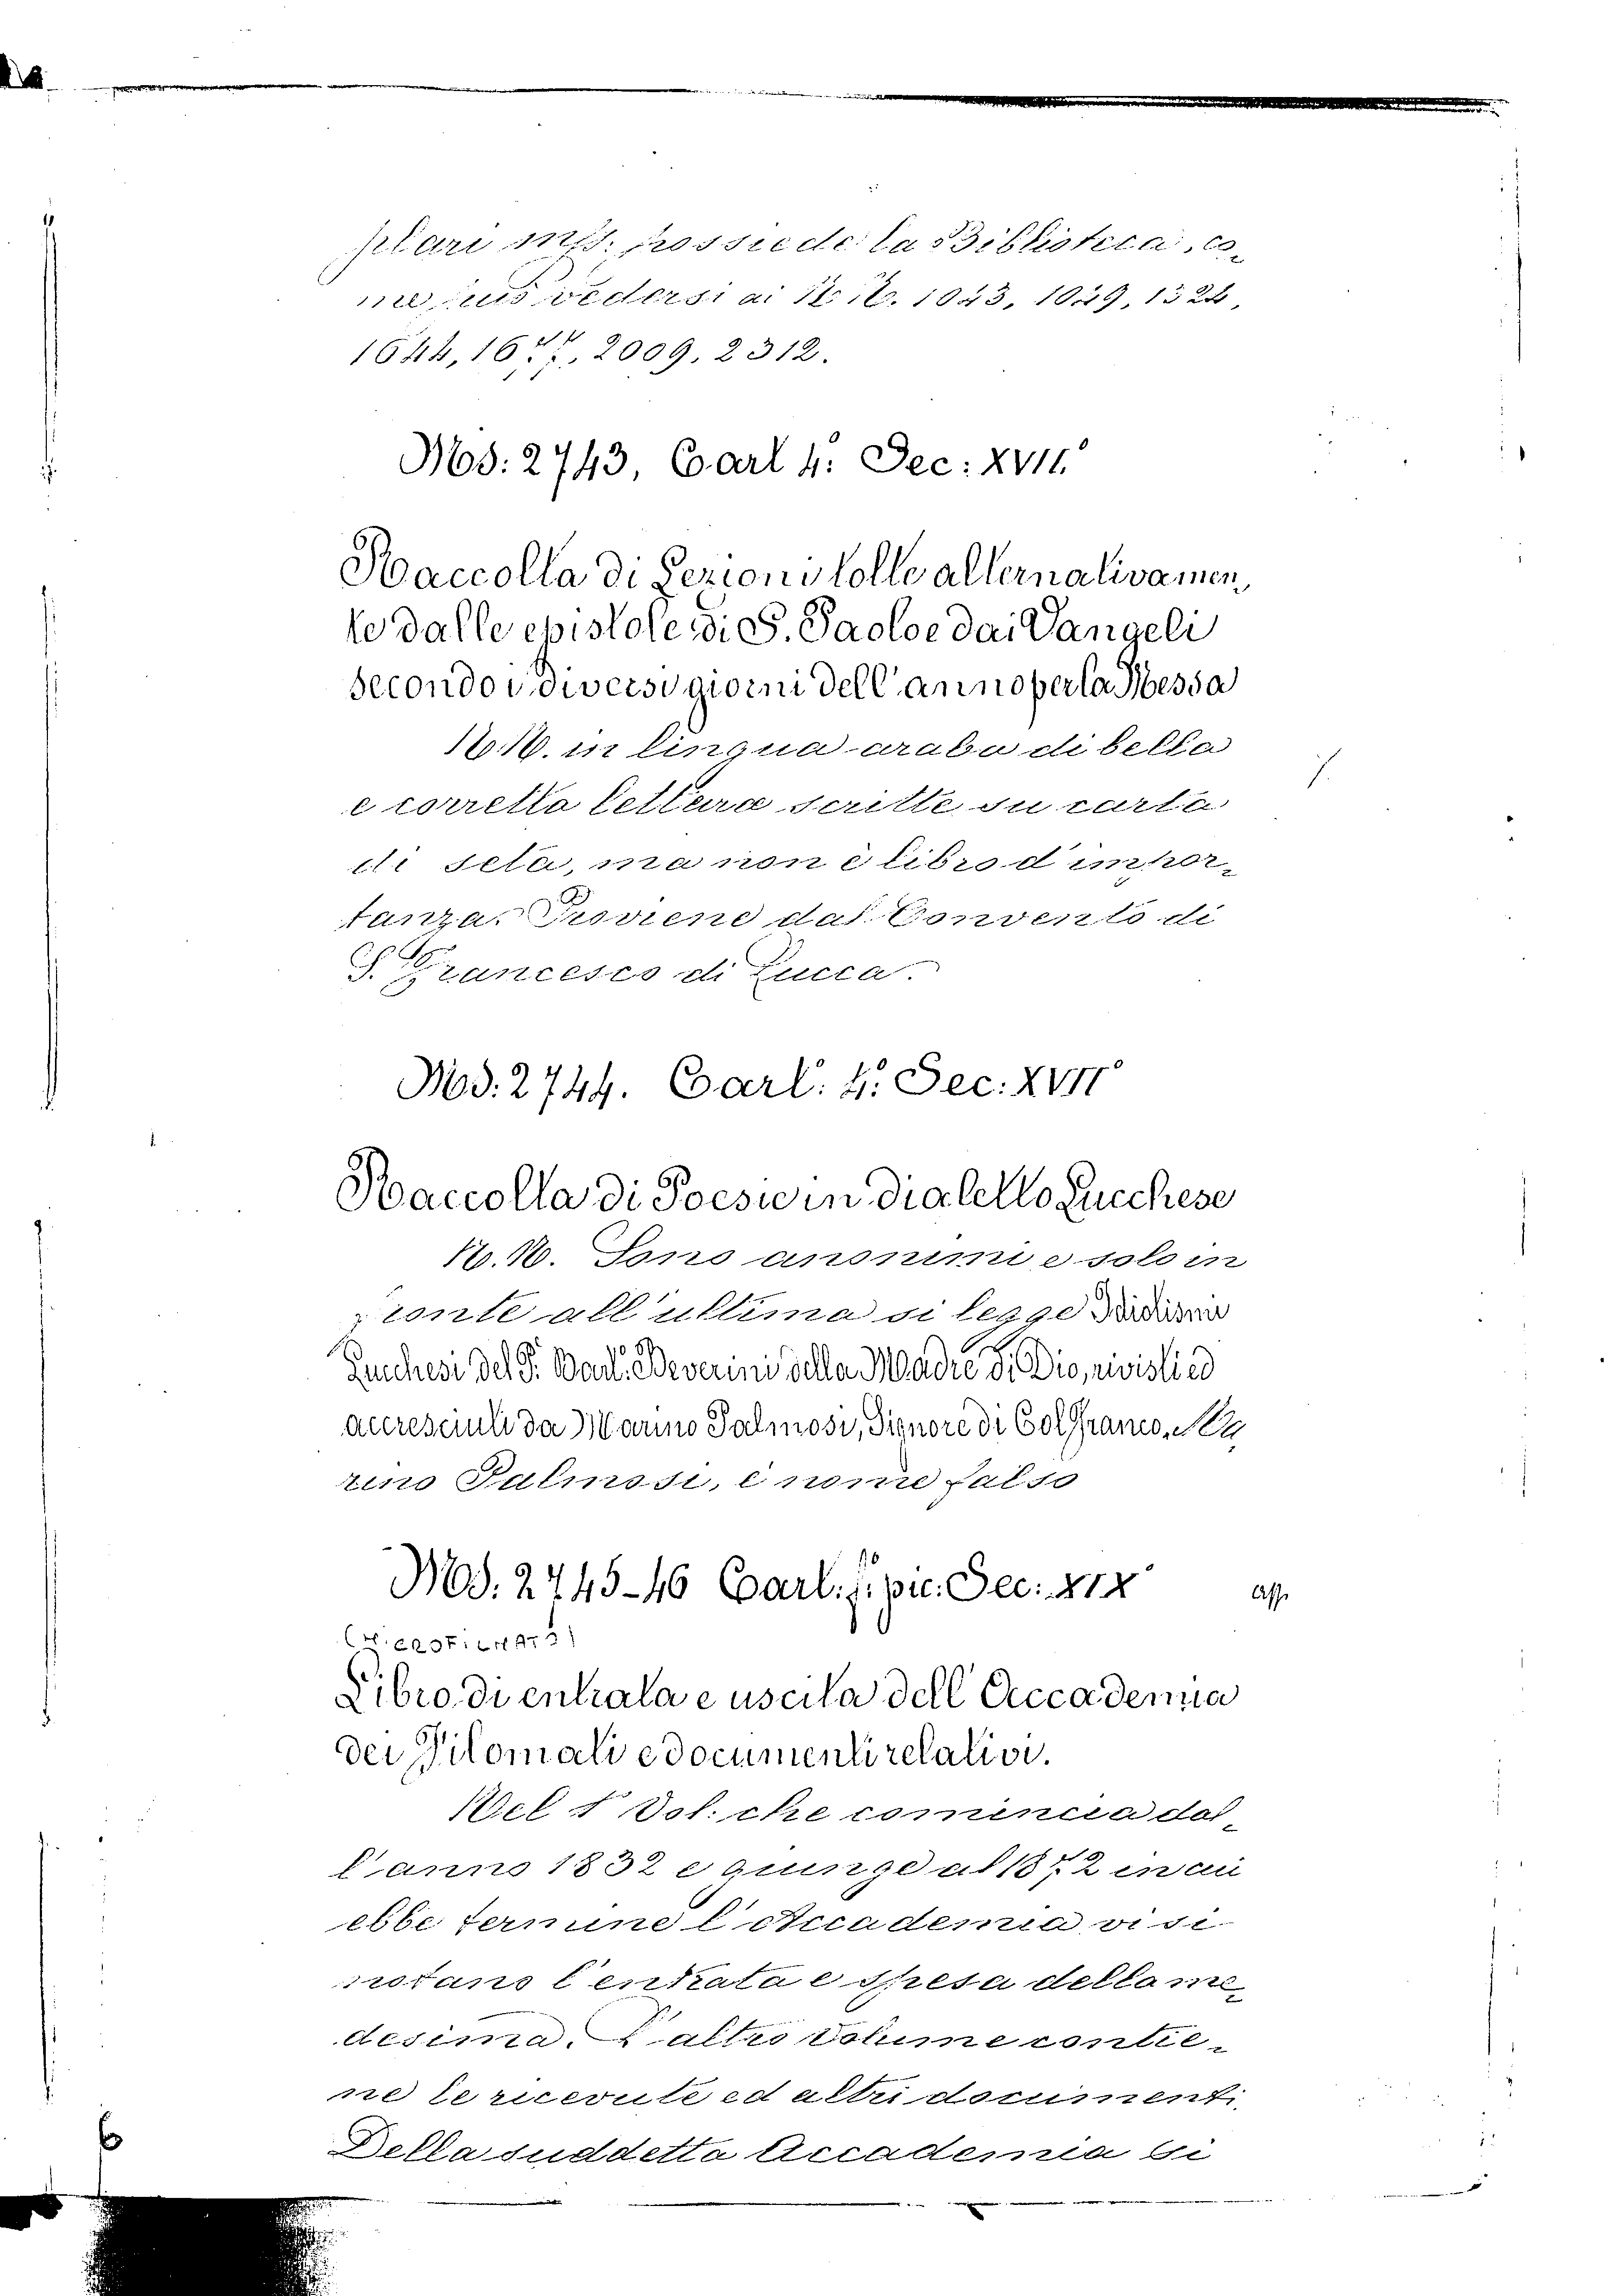 plari mss. possiede la Biblioteca, co-
me può vedersi ai N. N. 1023, 1029, 1324,
1644, 2009, 2312.
Ms: 2743, Cart. 4.° Sec: XVII.°
Raccolta di Lezioni tolte alternativamen-
te dalle epistole di S. Paolo e dai Vangeli
secondo i diversi giorni dell'anno per la Messa
N. N. in lingua araba di bella
e corretta lettura scritte su carta
di seta, ma non è libro d'impor-
tanza. Proviene dal Convento di
S. Francesco di Lucca.
Ms. 2744. Cart. 4.° Sec: XVII°
Raccolta di Poesie in dialetto Lucchese
N. N. Sono anonimi e solo in
fronte all'ultima si legge
Lucchesi del P. Bart. Beverini della Madre di Dio, rivisti ed
accresciuti da Marino Palmosi, Signore di Colfranco. Ma-
rino Palmosi, è nome falso
Ms. 2745-46 Cart. f.° pic. Sec: XIX°
Libro di entrata e uscita dell'Accademia
dei Filomati e documenti relativi.
Nel 1° Vol. che comincia dal-
l'anno 1832 e giunge al 1872 in cui
ebbe termine l'Accademia vi si
notano l'entrata e spesa della me-
desima. L'altro volume contie-
ne le ricevute ed altri documenti.
Della suddetta Accademia si